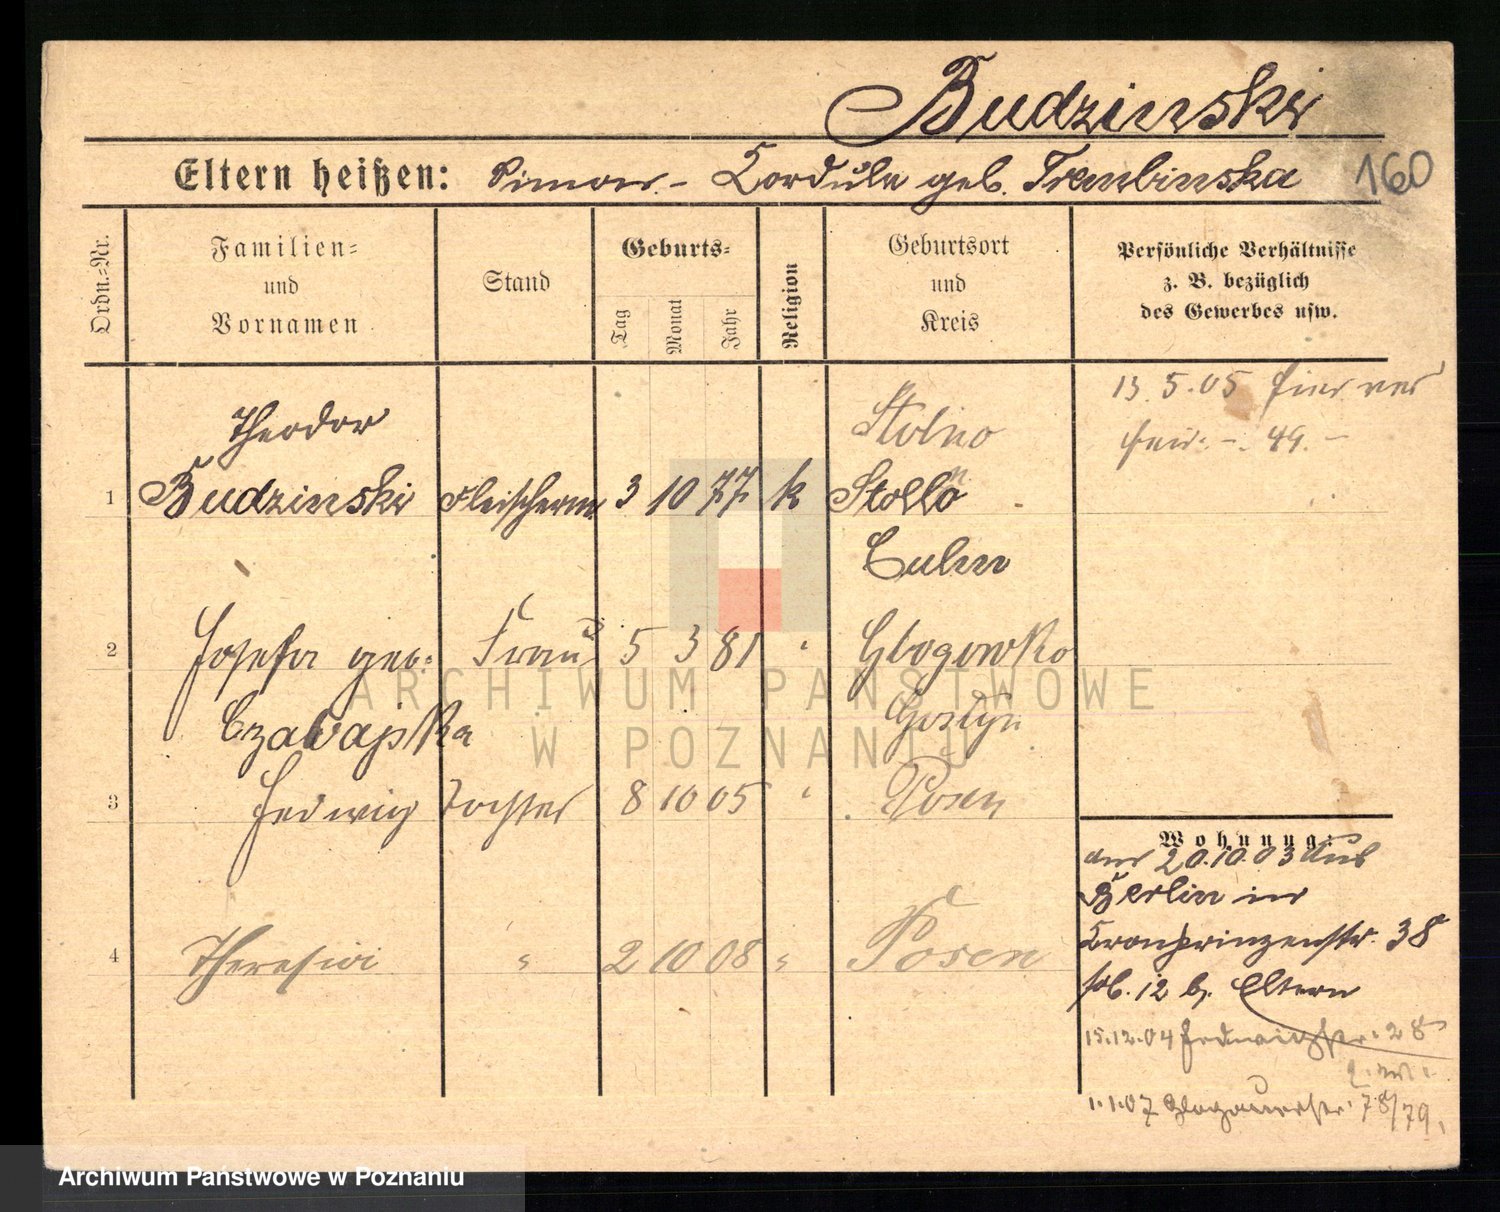 Budzinski
Eltern heißen: Simon. - Kordula geb. Trembinska 160
Ordn.-Nr.
Familien-
und
Vornamen
Stand
Geburts-
Tag
Monat
Jahr
Religion
Geburtsort
und
Kreis
Persönliche Verhältnisse
z. B. bezüglich
des Gewerbes usw.
13. 5. 05 hier
49. -
Theodor Stolno
1 Budzinski Fleischerm 3 10 77 k Stollo
Culm
2 Josefa geb. Frau 5 3 81 " Glogowko
Gostyn
3 Hedwig Tochter 8 10 05 " Posen
4 Theresia " 2 10 08 " Posen
Wohnung:
am 20.10.03 aus
Berlin in
Kronprinzenstr. 38
12 b. Eltern
15.12.04 Hedwigstr. 28
1.1.07 Glogauerstr. 78/79.
ARCHIWUM PAŃSTWOWE
W POZNANIU
Archiwum Państwowe w Poznaniu